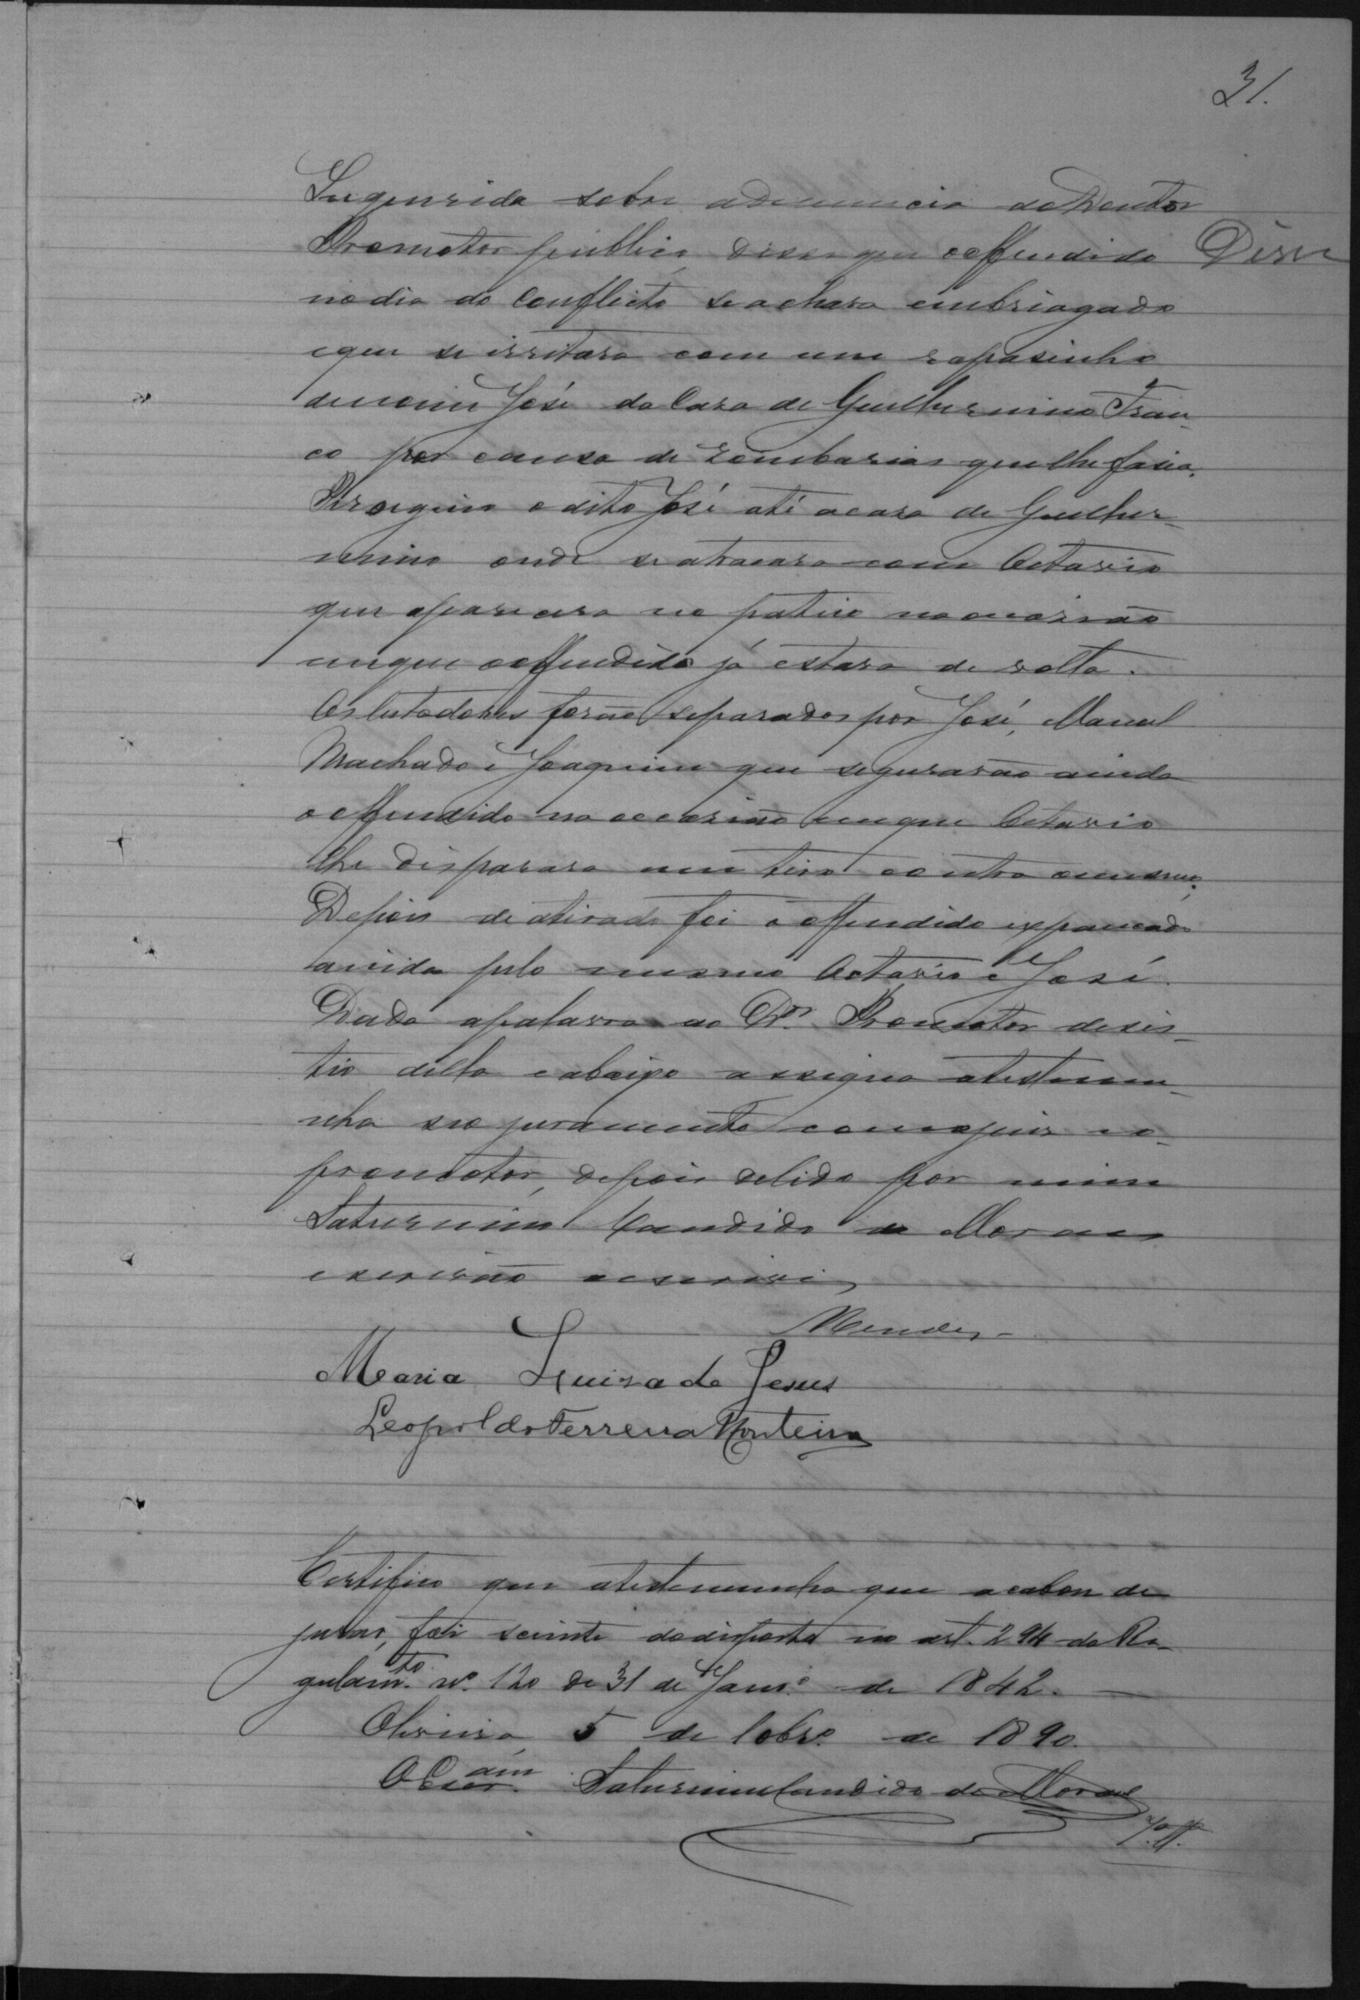 31.
Inquerida sobre a denuncia do Doutor
Promotor publico, disse que o offendido Disse
no dia do conflicto se achava embriagado
e que se irritara com um rapasinho
de nome José da Casa de Guilhermino Fran-
co por causa de zombarias que lhe fasia.
Perseguio o dito José até a casa de Guilher-
mino onde se atracara com Octavio
que aparecera no patio na occasião
em que o offendido já estava de volta.
Os lutadores forão separados por José, Manoel
Machado e Joaquim que segurarão ainda
o offendido na occasião em que Octavio
lhe disparara um tiro contra o mesmo.
Depois de atirado foi o offendido espancado
ainda pelo mesmo Octavio e José.
Dada a palavra ao Dr. Promotor desis-
tio della e abaixo assigna a testemu-
nha seo juramento com o juis e o
promotor, depois de lido por mim
Saturnino Candido de Moraes
escrivão o escrevi,
Mendes
Maria Luiza de Jesus
Leopoldo Ferreira Monteiro
Certifico que a testemunha que acabou de
jurar, foi sciente do disposto no art. 294 do Re-
gulamto. nº 120 de 31 de Janrº. de 1842.
Oliveira 5 de 1890.
O Escr.am Saturnino Candido de Moraes